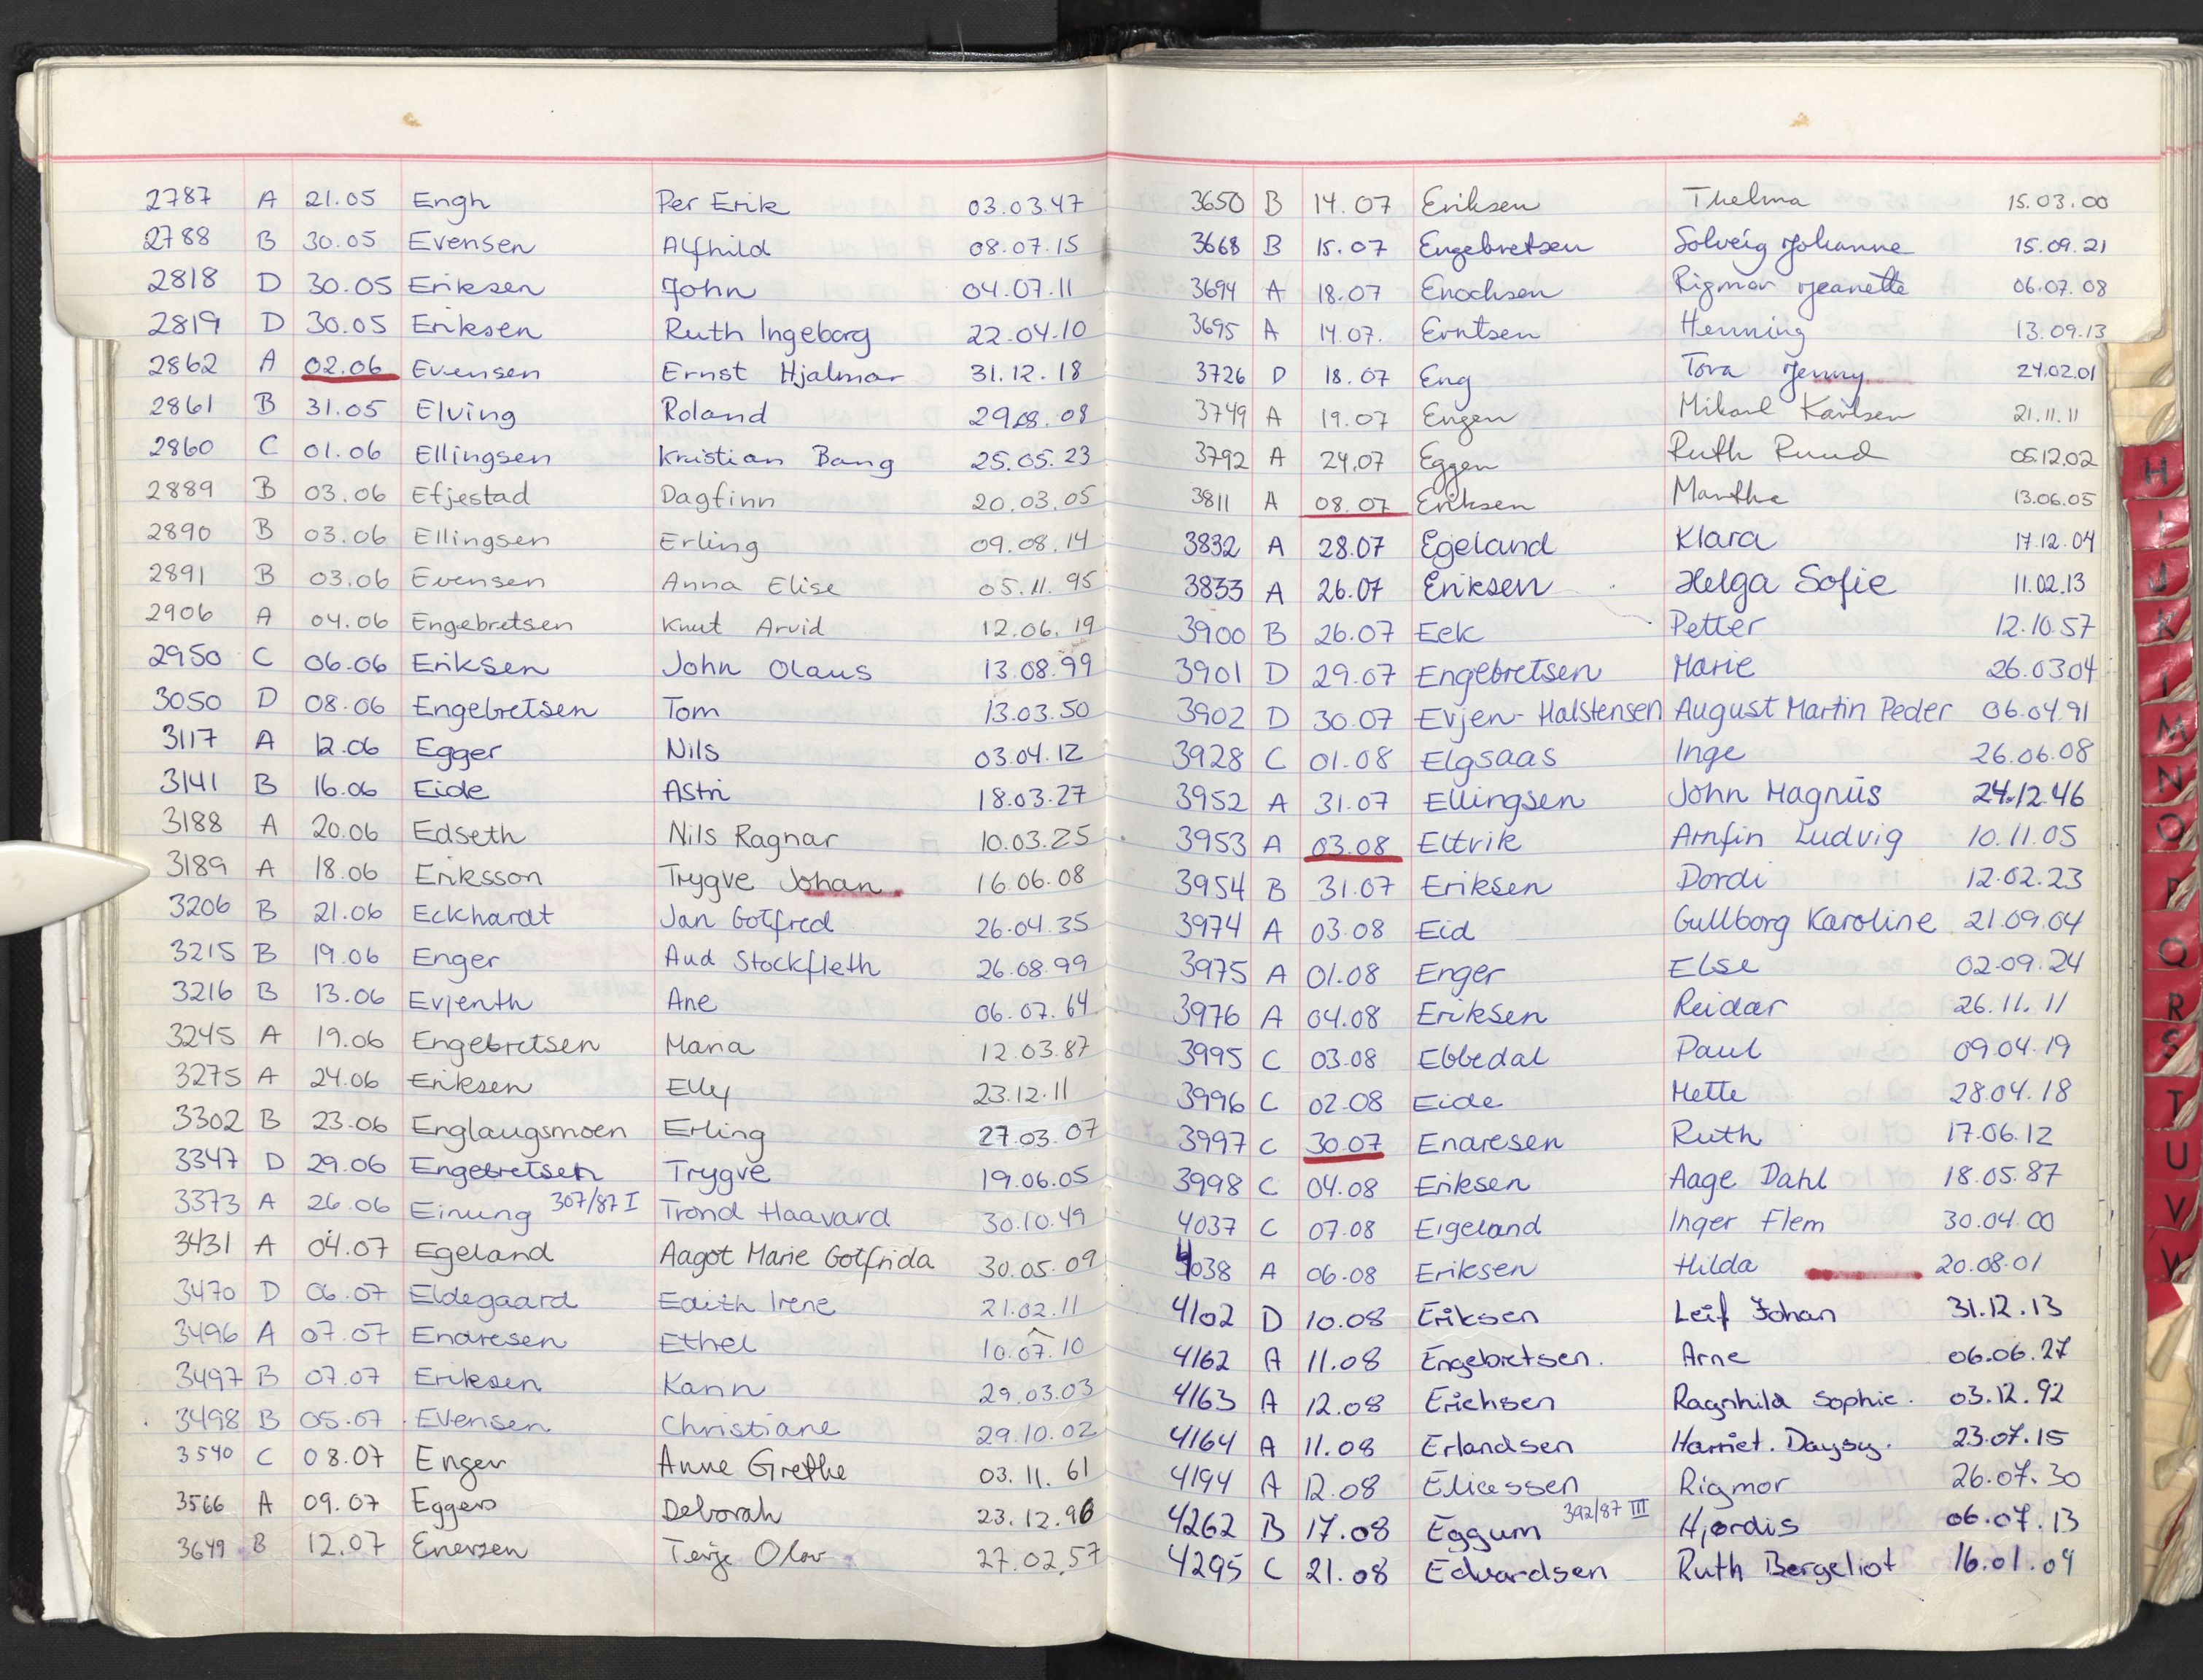 2787 A 21.05 Engh Per Erik 03.03.47
2788 B 30.05 Evensen Alfhild 08.07.15
2818 D 30.05 Eriksen John 04.07.11
2819 D 30.05 Eriksen Ruth Ingeborg 22.04.10
2862 A 02.06 Evensen Ernst Hjalmar 31.12.18
2861 B 31.05 Elving Roland 29.08.08
2860 C 01.06 Ellingsen Kristian Bang 25.05.23
2889 B 03.06 Efjestad Dagfinn 20.03.05
2890 B 03.06 Ellingsen Erling 09.08.14
2891 B 03.06 Evensen Anna Elise 05.11.95
2906 A 04.06 Engebretsen Knut Arvid 12.06.19
2950 C 06.06 Eriksen John Olaus 13.08.99
3050 D 08.06 Engebretsen Tom 13.03.50
3117 A 12.06 Egger Nils 03.04.12
3141 B 16.06 Eide Astri 18.03.27
3188 A 20.06 Edseth Nils Ragnar 10.03.25
3189 A 18.06 Eriksson Trygve Johan 16.06.08
3206 B 21.06 Eckhardt Jan Gotfred 26.04.35
3215 B 19.06 Enger Aud Stockfleth 26.08.99
3216 B 13.06 Evjenth Ane 06.07.64
3245 A 19.06 Engebretsen Maria 12.03.87
3275 A 24.06 Eriksen Elly 23.12.11
3302 B 23.06 Englaugsmoen Erling 27.03.07
3347 D 29.06 Engebretsen Trygve 19.06.05
3373 A 26.06 Einung 307/87 I Trond Haavard 30.10.49
3431 A 04.07 Egeland Aagot Marie Gotfrida 30.05.09
3470 D 06.07 Eldegaard Edith Irene 21.02.11
3496 A 07.07 Endresen Ethel 10.07.10
3497 B 07.07 Eriksen Karin 29.03.03
3498 B 05.07 Evensen Christiane 29.10.02
3540 C 08.07 Enger Anne Grethe 03.11.61
3566 A 09.07 Eggers Deborah 23.12.96
3649 B 12.07 Enersen Terje Olav 27.02.57
3650 B 14.07 Eriksen Thelma 15.03.00
3668 B 15.07 Engebretsen Solveig Johanne 15.09.21
3694 A 18.07 Enochsen Rigmor Jeanette 06.07.08
3695 A 14.07. Erntsen Henning 13.09.13
3726 D 18.07 Eng Tora Jenny 24.02.01
3749 A 19.07 Engen Mikael Karlsen 21.11.11
3792 A 24.07 Eggen Ruth Ruud 05.12.02
3811 A 08.07 Eriksen Marthe 13.06.05
3832 A 28.07 Egeland Klara 17.12.04
3833 A 26.07 Eriksen Helga Sofie 11.02.13
3900 B 26.07 Eek Petter 12.10.57
3901 D 29.07 Engebretsen Marie 26.03.04
3902 D 30.07 Evjen-Halstensen August Martin Peder 06.04.91
3928 C 01.08 Elgsaas Inge 26.06.08
3952 A 31.07 Ellingsen John Magnus 24.12.46
3953 A 03.08 Eltvik Arnfin Ludvig 10.11.05
3954 B 31.07 Eriksen Dordi 12.02.23
3974 A 03.08 Eid Gullborg Karoline 21.09.04
3975 A 01.08 Enger Else 02.09.24
3976 A 04.08 Eriksen Reidar 26.11.11
3995 C 03.08 Ebbedal Paul 09.04.19
3996 C 02.08 Eide Mette 28.04.18
3997 C 30.07 Endresen Ruth 17.06.12
3998 C 04.08 Eriksen Aage Dahl 18.05.87
4037 C 07.08 Eigeland Inger Flem 30.04.00
4038 A 06.08 Eriksen Hilda 20.08.01
4102 D 10.08 Eriksen Leif Johan 31.12.13
4162 A 11.08 Engebretsen. Arne 06.06.27
4163 A 12.08 Erichsen Ragnhild Sophie. 03.12.92
4164 A 11.08 Erlandsen Harriet. Daysy. 23.07.15
4194 A 12.08 Eliassen Rigmor 26.07.30
4262 B 17.08 Eggum 392/87 III Hjørdis 06.07.13
4295 C 21.08 Edvardsen Ruth Bergeliot 16.01.09
H
I
J
K
L
M
N
O
P
Q
R
S
T
U
V
W